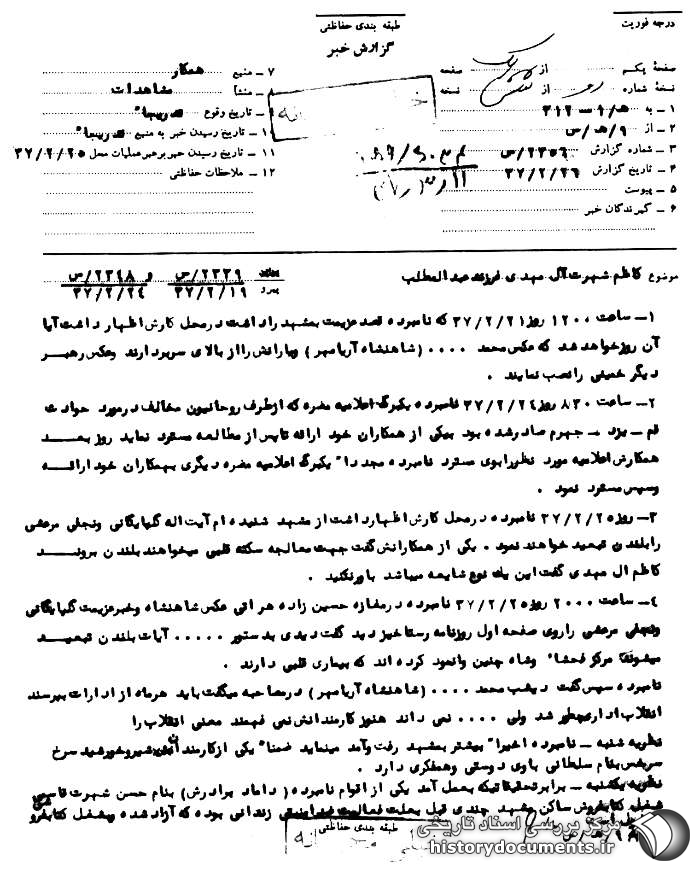 طبقه بندی حفاظتی
درجه فوریت
گزارش خبر
صفحه یکم از صفحه
نسخه شماره از نسخه
۱ - به ۳۱۲
۲ - از ۹/هـ/س
۳ - شماره گزارش ۲۳۵۶/س
۴ - تاریخ گزارش ۳۷/۲/۲۶
۵ - پیوست
۶ - گیرندگان خبر
۷ - منبع همکار
۸ - منشأ مشاهدات
۹ - تاریخ وقوع تدریجا"
۱۰ - تاریخ رسیدن خبر به منبع تدریجا"
۱۱ - تاریخ رسیدن خبر برهبر عملیات محل ۳۷/۲/۲۵
۱۲ - ملاحظات حفاظتی
موضوع کاظم شهرت آل مهدی فرزند عبدالمطلب
پیرو ۲۳۳۹/س ۳۷/۲/۱۹ و ۲۳۴۸/س ۳۷/۲/۲۴
۱- ساعت ۱۲۰۰ روز ۳۷/۲/۲۱ که نامبرده قصد عزیمت بمشهد را داشت در محل کارش اظهار داشت آیا
آن روز خواهد شد که عکس محمد .... (شاهنشاه آریامهر) ویارانش را از بالای سر بردارند وعکس رهبر
دیگر خمینی را نصب نمایند .
۲- ساعت ۸۳۰ روز ۳۷/۲/۲۴ نامبرده یکبرگ اعلامیه مضره که از طرف روحانیون مخالف در مورد حوادث
قم - یزد - جهرم صادر شده بود بیکی از همکاران خود ارائه تا پس از مطالعه مسترد نماید روز بعد
همکارش اعلامیه مورد نظر را بوی مسترد نامبرده مجددا" یکبرگ اعلامیه مضره دیگری بهمکاران خود ارائه
وسپس مسترد نمود .
۳- روز ۳۷/۲/۲۵ نامبرده در محل کارش اظهار داشت از مشهد شنیده ام آیت اله گلپایگانی ونجفی مرعشی
را بلندن تبعید خواهند نمود . یکی از همکارانش گفت جهت معالجه سکته قلبی میخواهند بلندن بروند
کاظم ال مهدی گفت این یك نوع شایعه میباشد باور نکنید .
۴- ساعت ۲۰۰۰ روز ۳۷/۲/۲۵ نامبرده در مغازه حسین زاده هراتی عکس شاهنشاه وخبر عزیمت گلپایگانی
ونجفی مرعشی را روی صفحه اول روزنامه رستاخیز دید گفت دیدی بدستور ..... آیات بلندن تبعید
میشوند مرکز فحشاء وشاه چنین وانمود کرده اند که بیماری قلبی دارند .
نامبرده سپس گفت دیشب محمد .... (شاهنشاه آریامهر) در مصاحبه میگفت باید هرماه از ادارات بپرسند
انقلاب اداری چطور شد ولی .... نمی داند هنوز کارمندانش نمی فهمند معنی انقلاب را
نظریه شنبه - نامبرده اخیرا" بیشتر بمشهد رفت وآمد مینماید ضمنا" یکی از کارمندان شیر وخورشید سرخ
سرخس بنام سلطانی باوی دوستی وهمفکری دارد .
نظریه یکشنبه - برابر تحقیقاتیکه بعمل آمد یکی از اقوام نامبرده (داماد برادرش) بنام حسن شهرت قاسمی
شغل کتابفروش ساکن مشهد چندی قبل بعلت فعالیت زندانی بوده که آزاد شده وبشغل کتابفروشی
طبقه بندی حفاظتی
مرکز بررسی اسناد تاریخی
historydocuments.ir